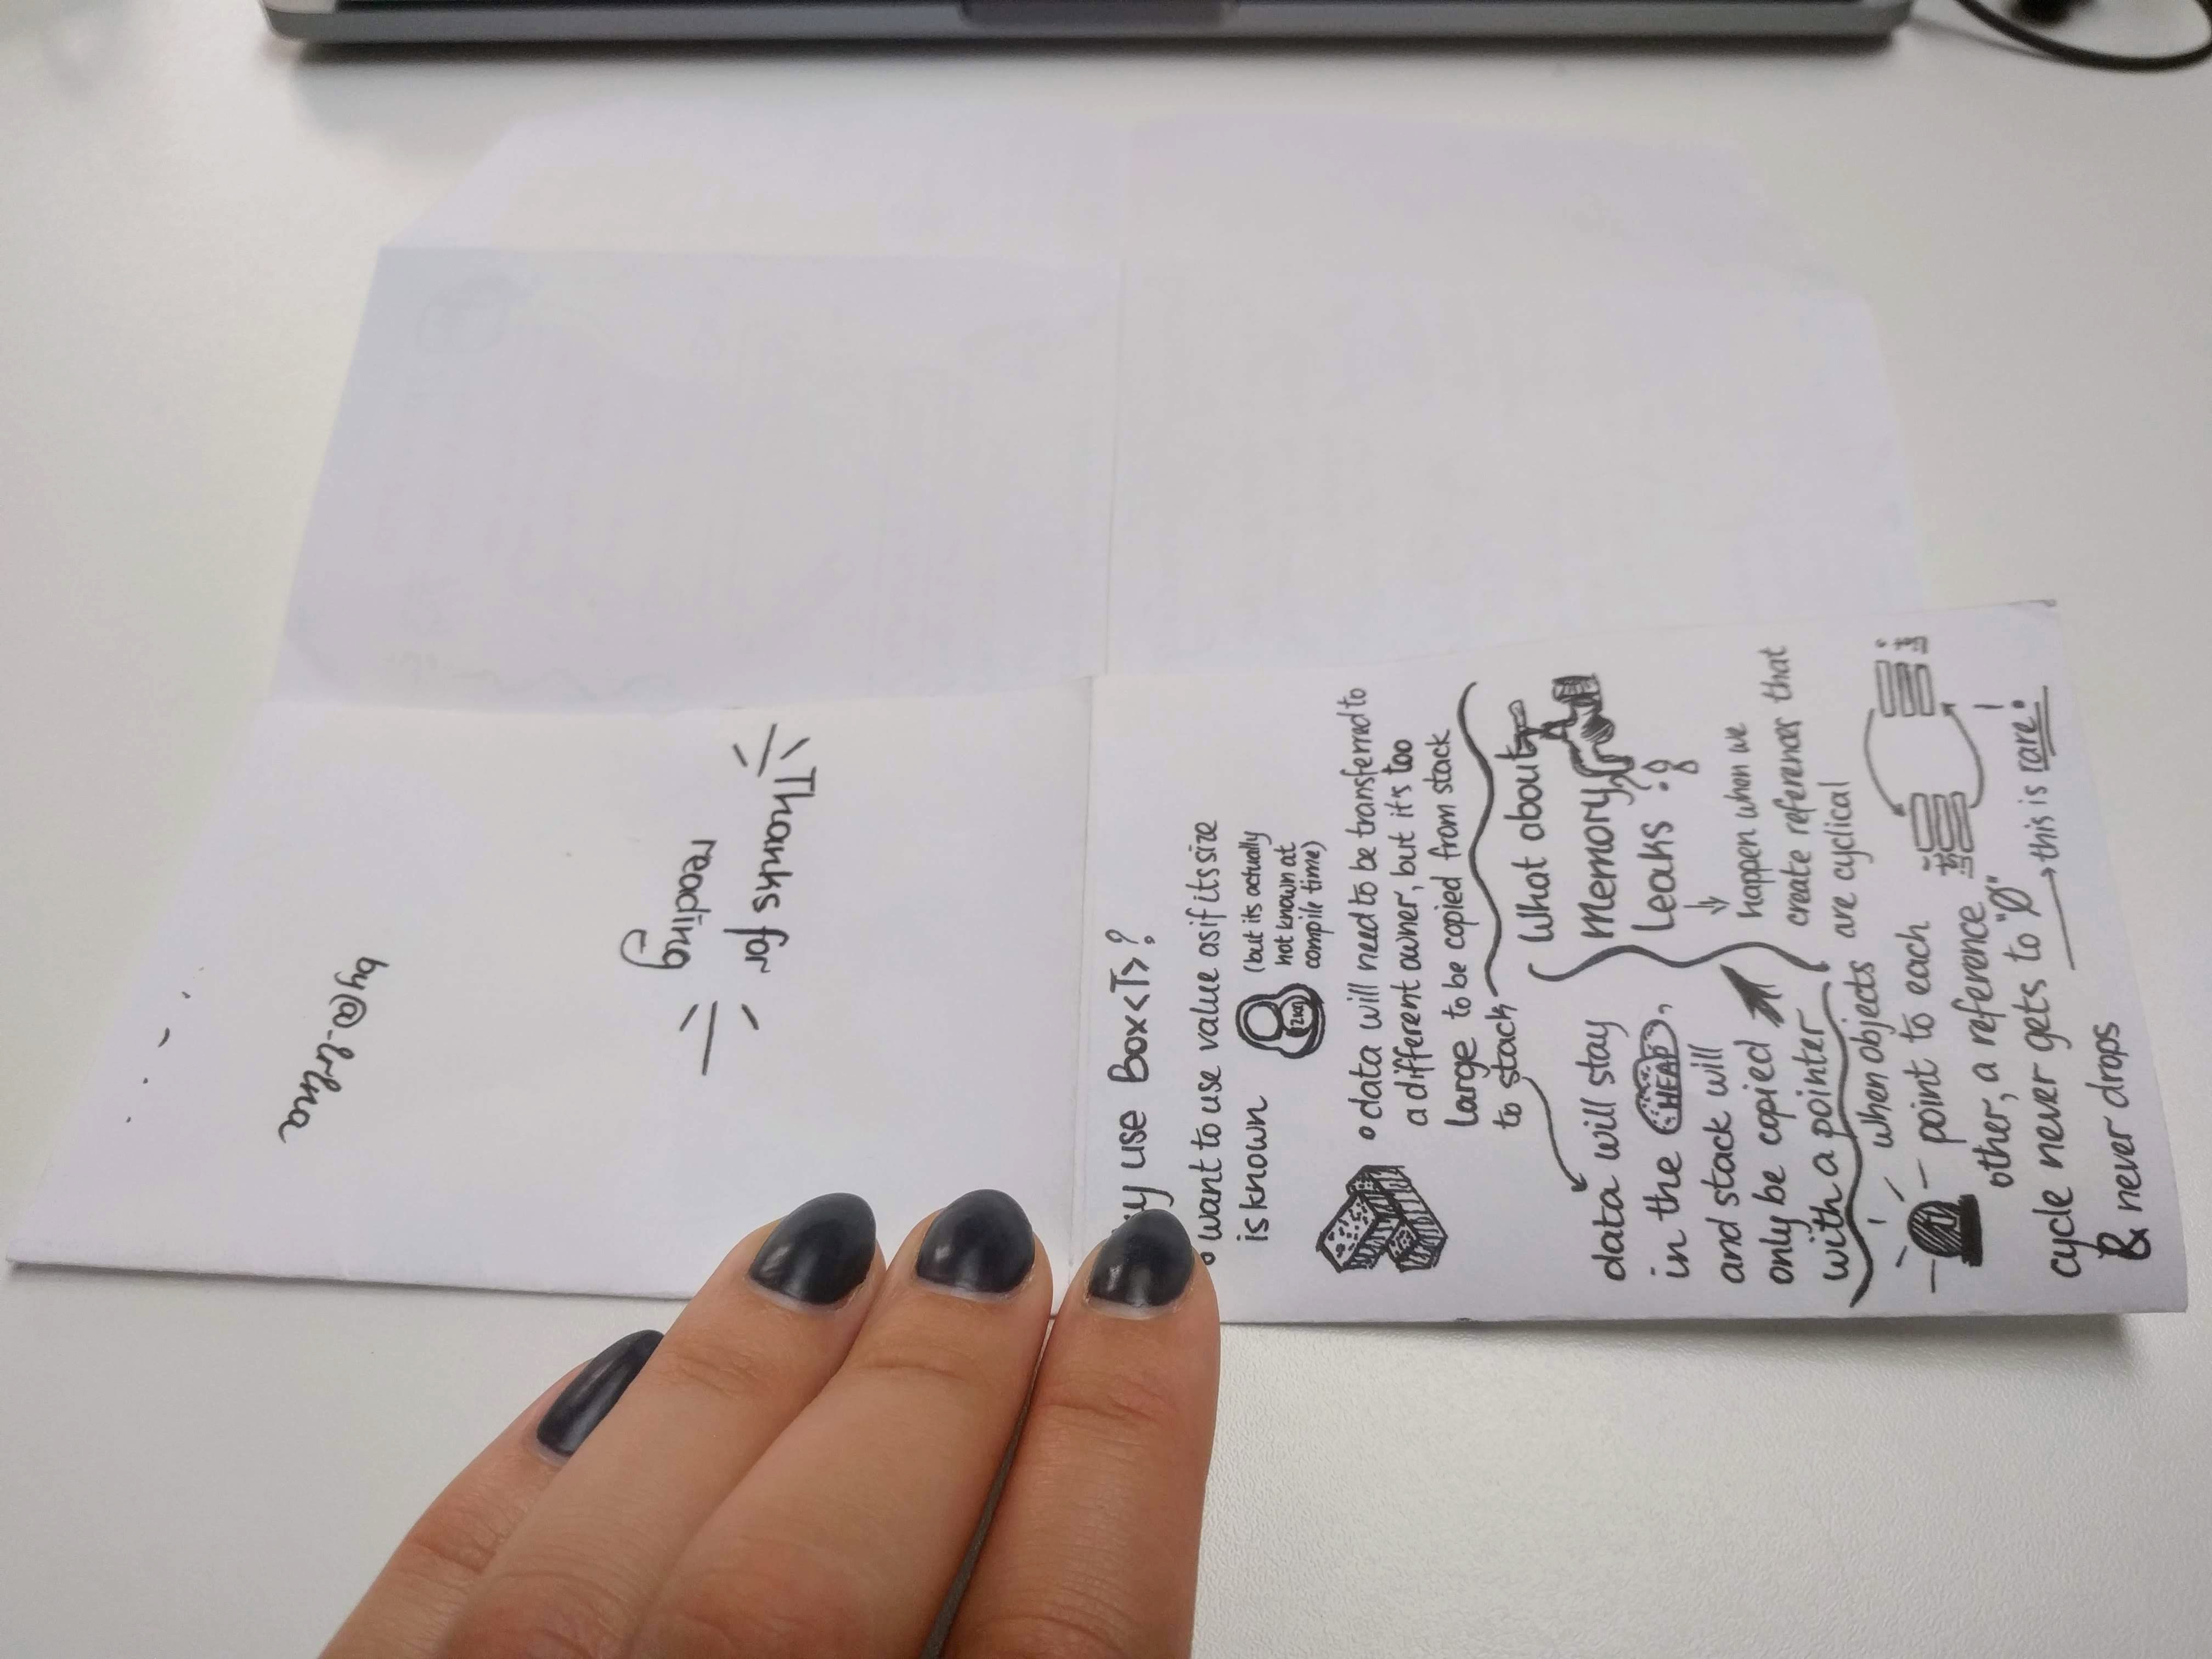 Thanks for
reading
by @_lrlna
use Box<T>?
want to use value as if its size
is known
(but its actually
not known at
compile time)
2KG
data will need to be transferred to
a different owner, but it's too
large to be copied from stack
to stack
data will stay
in the HEAP,
and stack will
only be copied
with a pointer
What about
Memory
Leaks?
happen when we
create references that
are cyclical
when objects
point to each
other, a reference
cycle never gets to "0"
& never drops
this is rare!